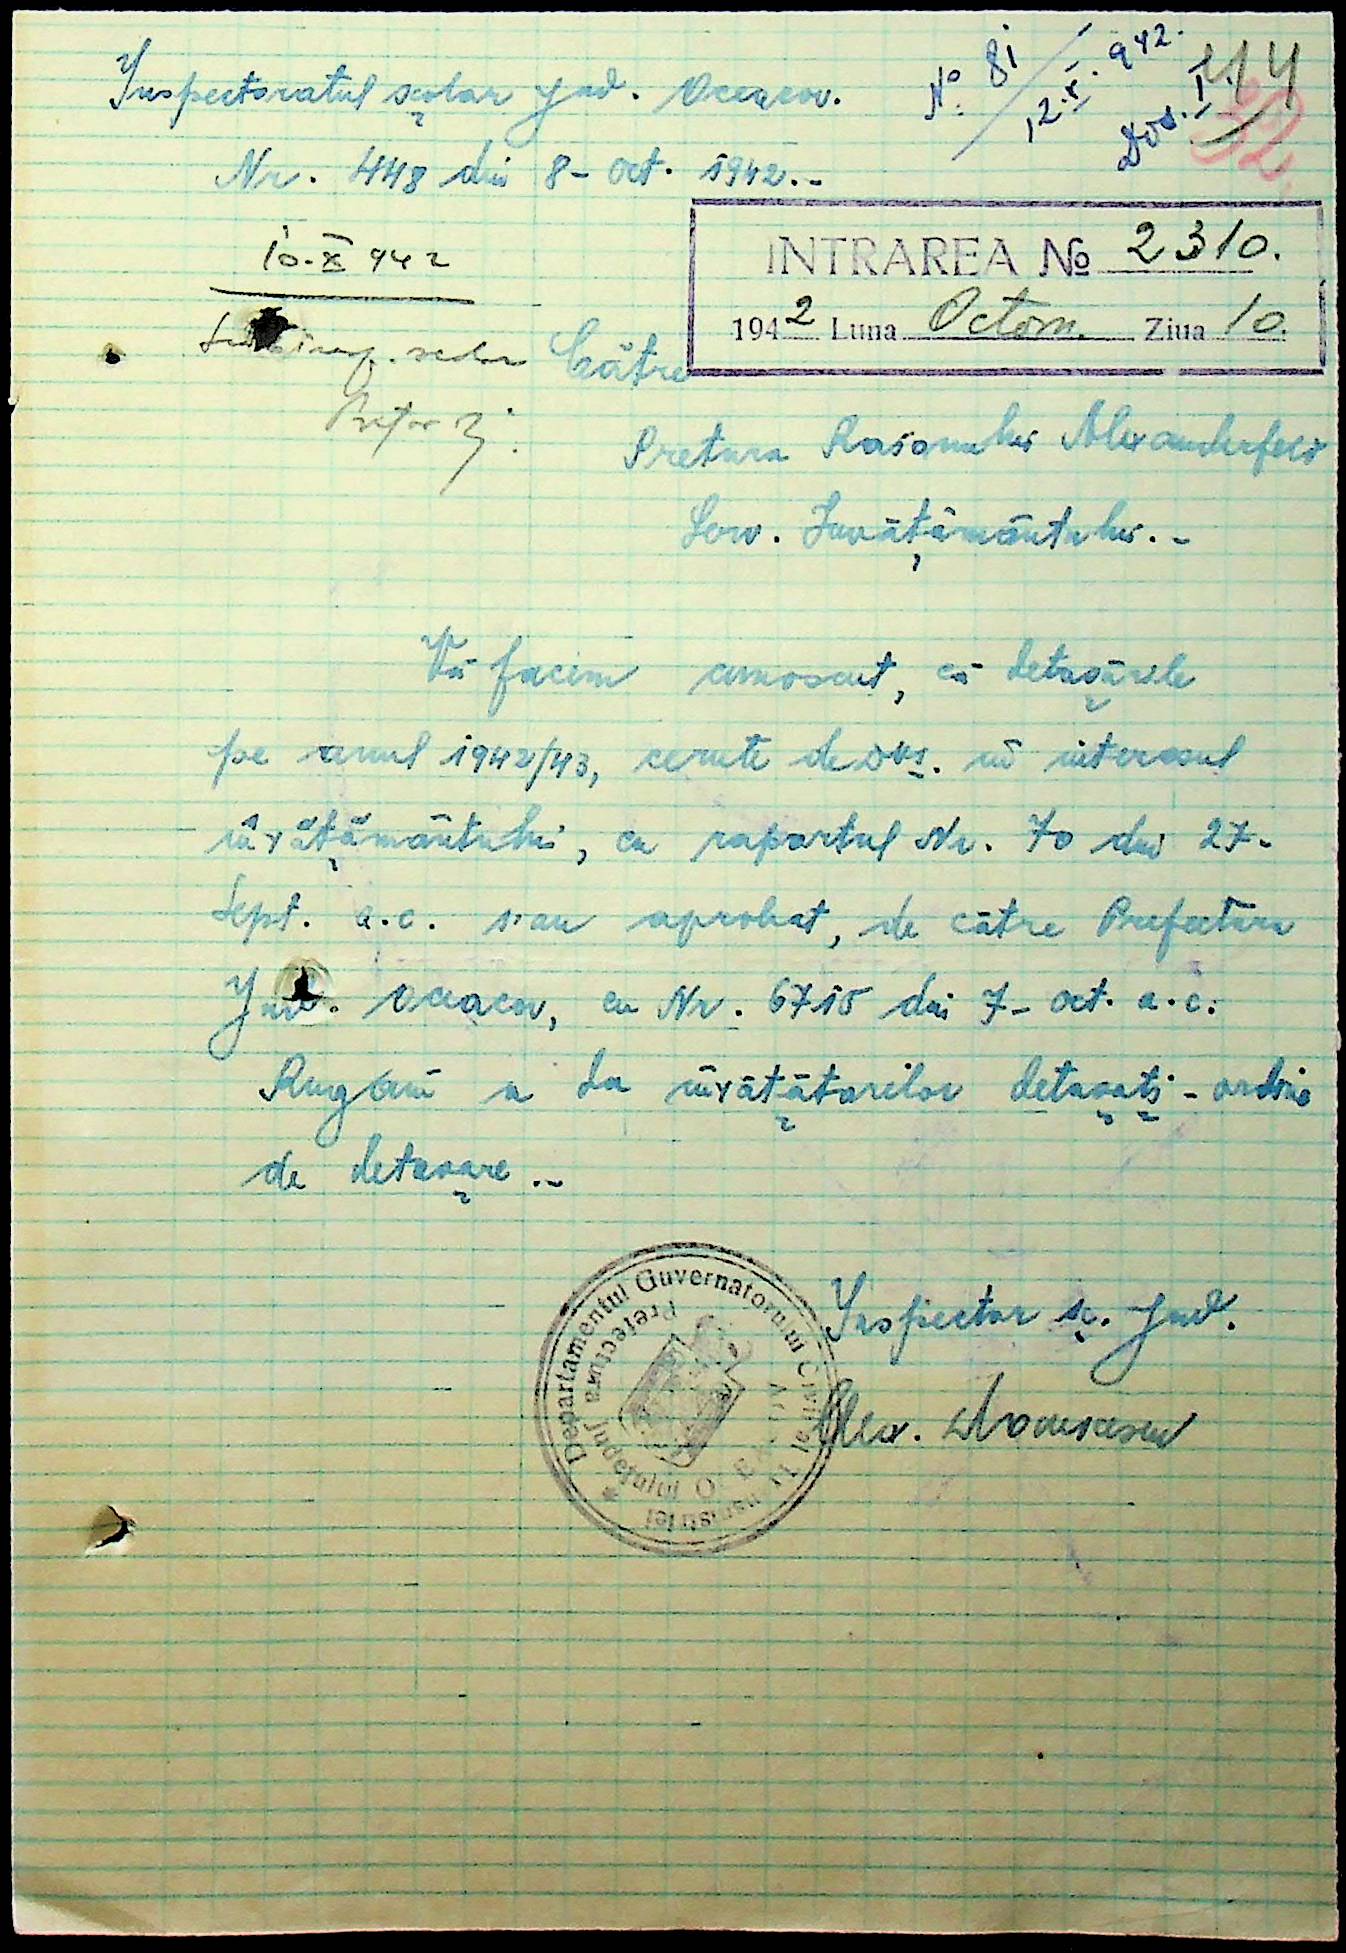 Inspectoratul școlar Jud. Oceacov.
Nr. 448 din 8-oct. 1942.-
No. 81
12.X.942.
Dos. I.
114
32.
10.X 942
INTRAREA № 2310.
1942 Luna Octom. Ziua 10.
Către
Pretor
Pretura Raionului Alexanderfeld
Serv. Învățământului.-
Vă facem cunoscut, că detașările
pe anul 1942/43, cerute de Dvs. în interesul
învățământului, cu raportul Nr. 70 din 27-
Sept. a.c. s'au aprobat, de către Prefectura
Jud. Oceacov, cu Nr. 6715 din 7-oct. a.c.
Rugăm a da învățătorilor detașați - ordine
de detașare.-
Inspector șc. Jud.
Alex.
Departamentul Guvernatorului Civil al Transnistriei
Prefectura Județului